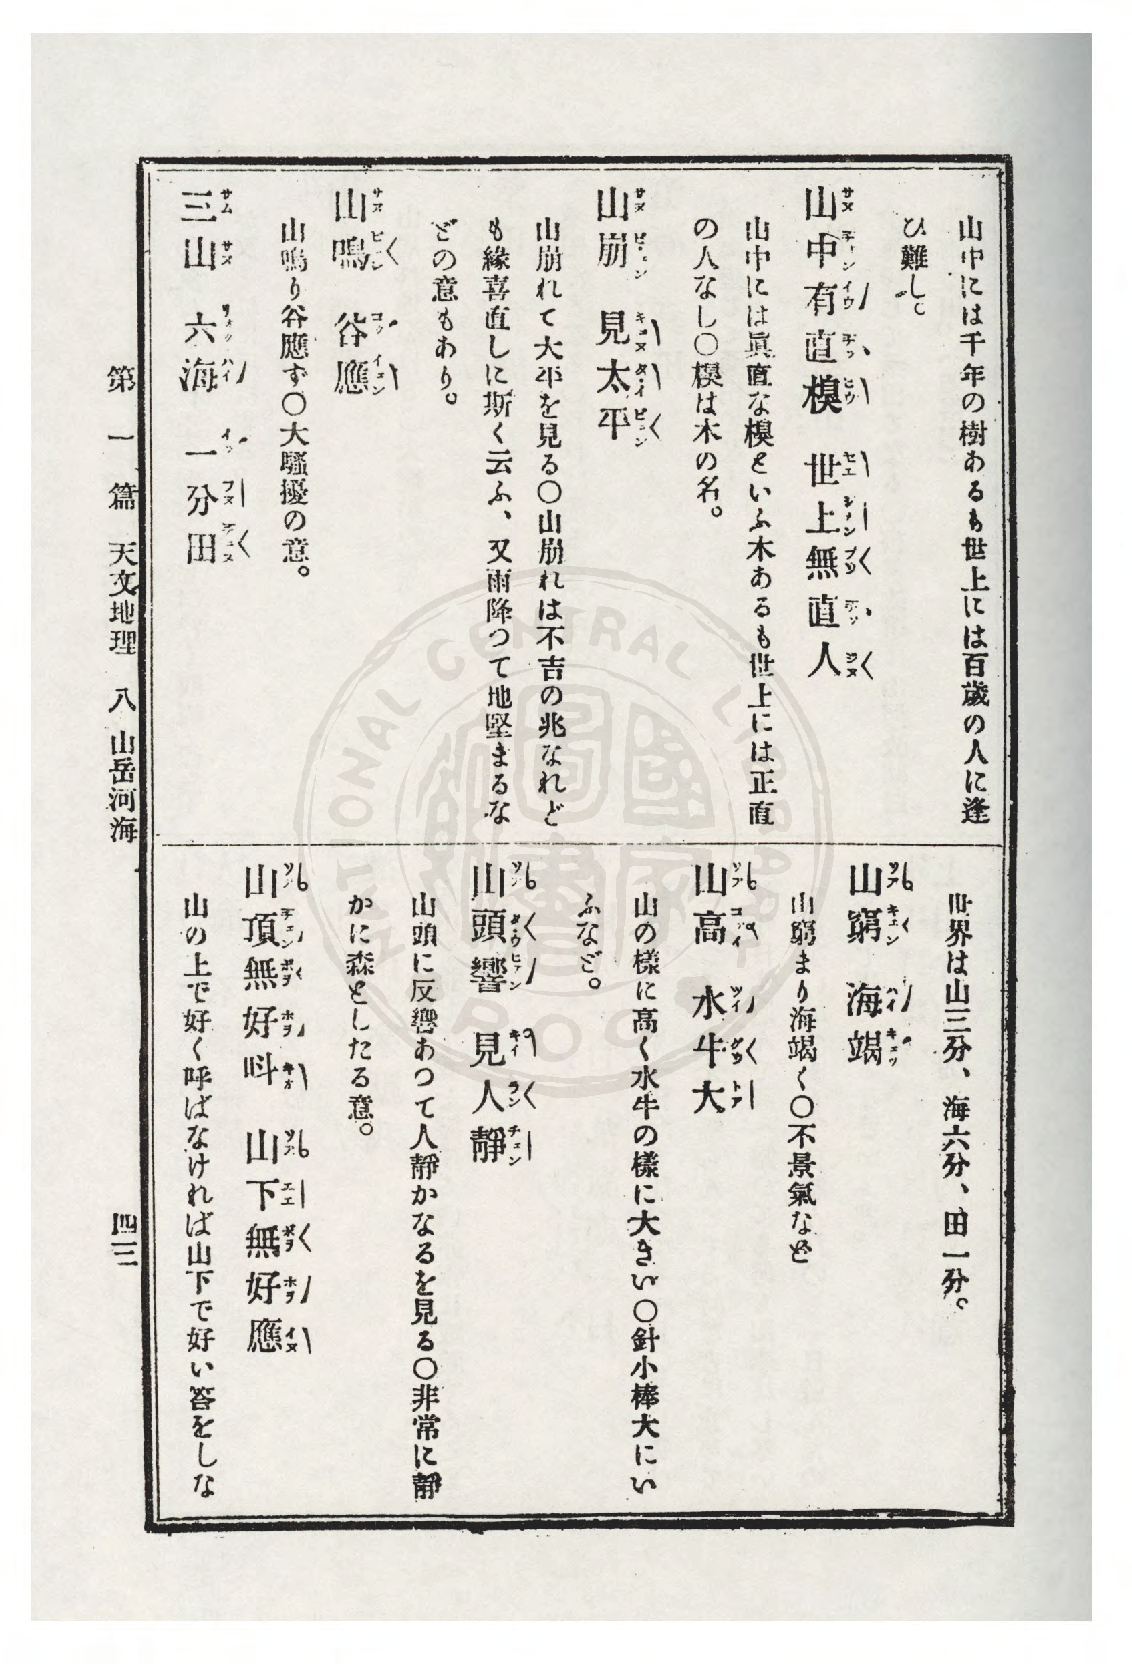 山中には千年の樹あるも世上には百歲の人に逢
ひ難し。
山中有直樸 世上無直人
山中には眞直な樸といふ木あるも世上には正直
の人なし〇樸は木の名。
山崩 見太平
山崩れて大平を見る〇山崩れは不吉の兆なれど
も緣喜直しに斯く云ふ、又雨降つて地堅まるな
どの意もあり。
山鳴 谷應
山鳴り谷應ず〇大騷擾の意。
三山 六海 一分田
世界は山三分、海六分、田一分。
山窮 海竭
山窮まり海竭く〇不景氣など
山高 水牛大
山の樣に高く水牛の樣に大きい〇針小棒大にい
ふなど。
山頭響 見人靜
山頭に反響あつて人靜かなるを見る〇非常に靜
かに森としたる意。
山頂無好呌 山下無好應
山の上で好く呼ばなければ山下で好い答をしな
第一篇 天文地理 八 山岳河海
四三
NATIONAL CENTRAL LIBRARY
ROC
國家圖書